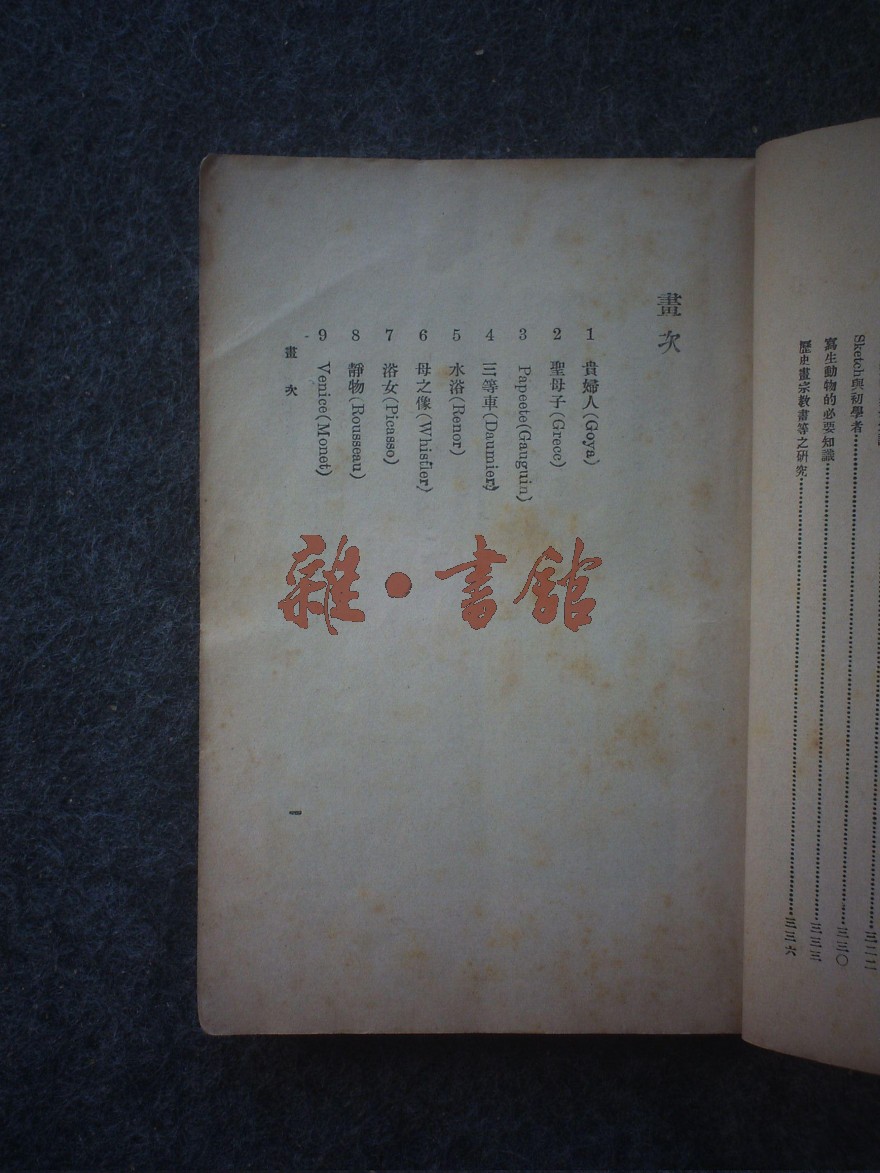 Sketch與初學者……三三〇
寫生動物的必要知識……三三三
歷史畫宗教畫等之硏究……三三六
畫次
1 貴婦人(Goya)
2 聖母子(Grece)
3 Papeete(Gauguin)
4 三等車(Daumier)
5 水浴(Renor)
6 母之像(Whistler)
7 浴女(Picasso)
8 靜物(Rousseau)
9 Venice(Monet)
畫次
一
雜·書館